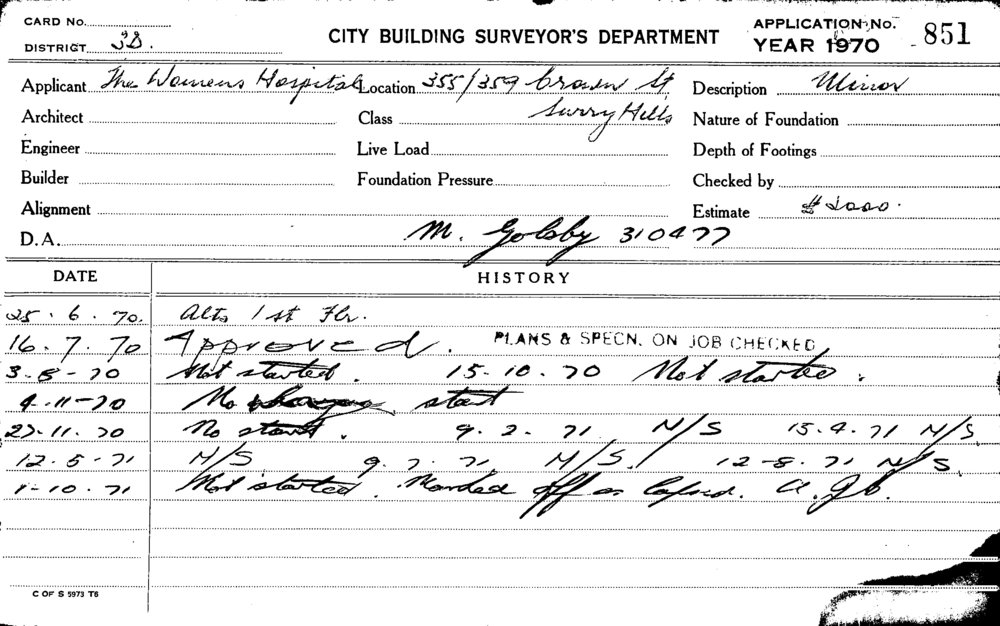 CARD No.
DISTRICT 3D. CITY BUILDING SURVEYOR'S DEPARTMENT APPLICATION No. 851
YEAR 1970
Applicant The Womens Hospital Location 355/359 Crown St Description Minor
Surry Hills
Architect Class Nature of Foundation
Engineer Live Load Depth of Footings
Builder Foundation Pressure Checked by
Alignment Estimate $2000.
D.A. M. Golsby 310477
DATE HISTORY
25.6.70. Alts 1st Flr.
16.7.70 Approved. PLANS & SPECN. ON JOB CHECKED
3-8-70 Not started. 15.10.70 Not started.
4-11-70 No start
27.11.70 No start. 9.2.71 N/S 15.4.71 N/S.
12.5.71 N/S 9.7.71 N/S. 12-8.71 N/S.
1-10.71 Not started. Marked off as lapsed.
C OF S 5973 T6